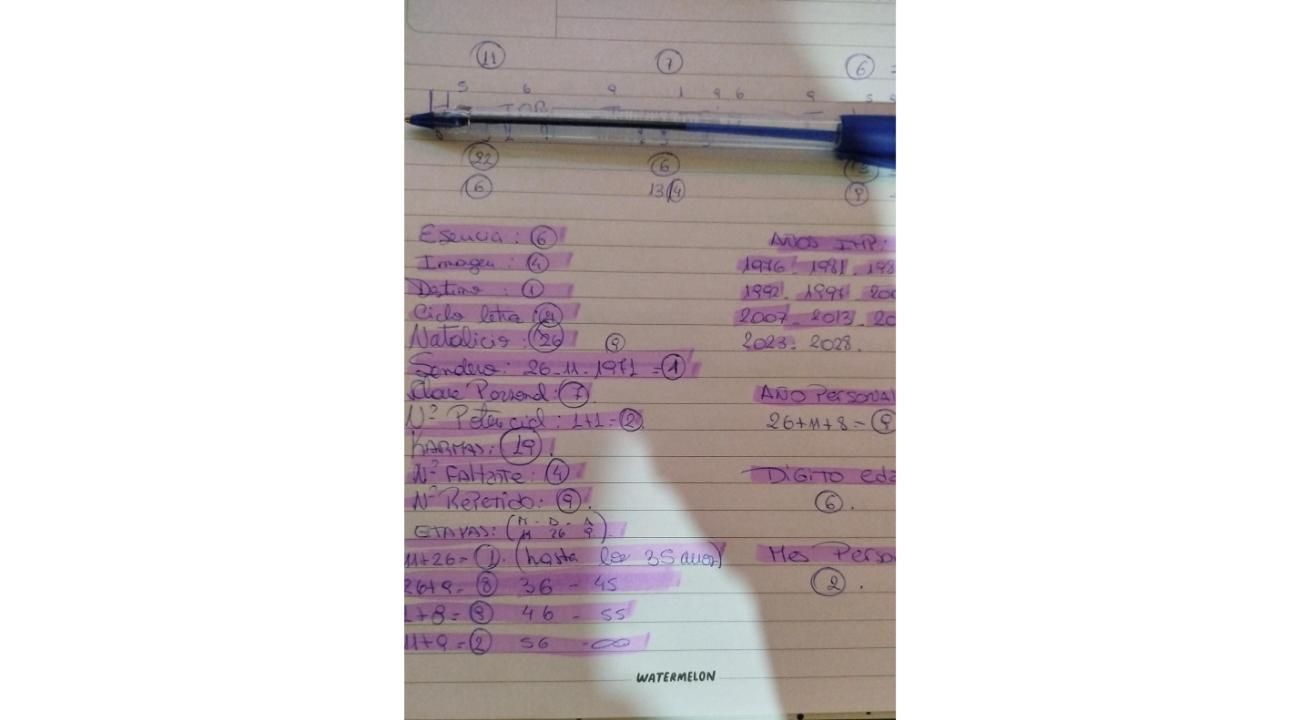 11 7 6 =
5 6 9 1 9 6 9 5
22 6 13
6 13/4 9
Esencia: 6
Imagen: 4
Destino: 1
Ciclo letra:
Natalicio: 26 9
Sendero: 26-11-1971 = 1
Clave Personal: 7
Nº Potencial: 1+1=2
KARMAS: 19.
Nº FALTANTE: 4
Nº REPETIDO: 9.
ETAPAS: (M - D - A
11 26 9).
11+26= 1. (hasta los 35 años)
26+9= 8 36 - 45
1+8= 9 46 - 55
11+9= 2 56 - ∞
AÑOS IMP:
1976. 1981. 198
1992. 1997. 200
2007 - 2013. 20
2023. 2028.
AÑO PERSONAL
26+11+8= 9
DIGITO eda
6.
Mes Perso
2.
WATERMELON